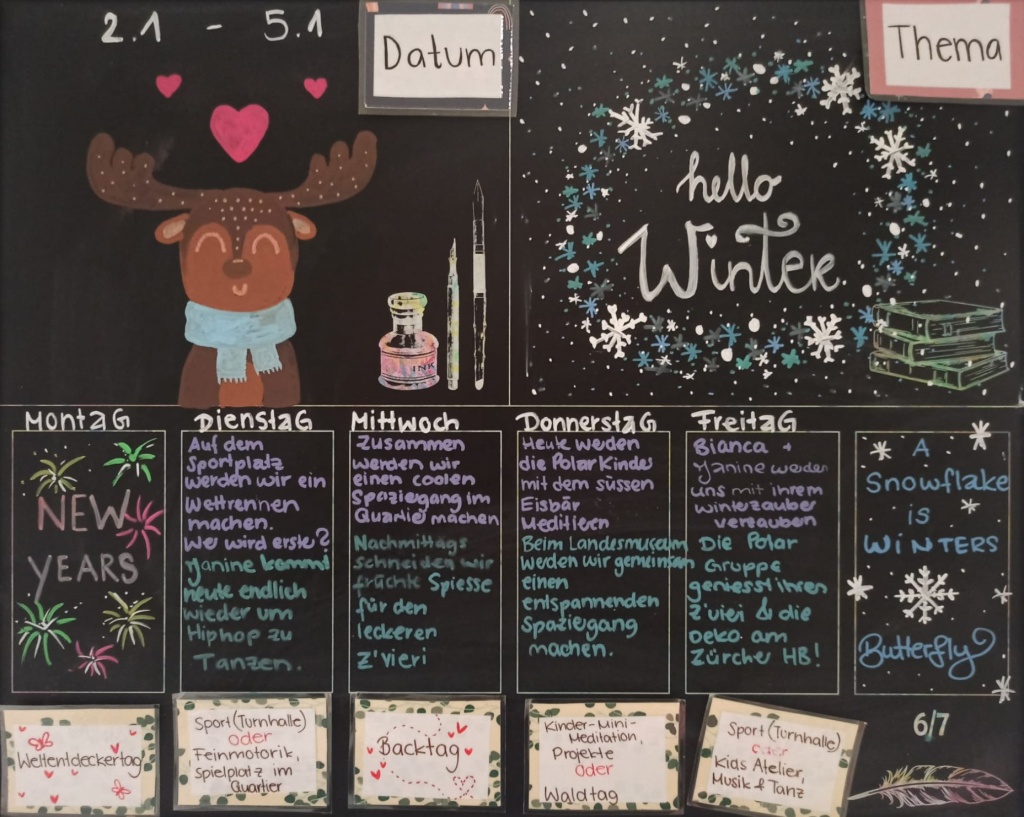 2.1 - 5.1
Datum
Thema
hello
Winter
INK
MONTAG
DIENSTAG
MITTWOCH
DONNERSTAG
FREITAG
NEW
YEARS
Auf dem
Sportplatz
werden wir ein
Wettrennen
machen.
Wer wird erste?
Janine kommt
heute endlich
wieder um
Hiphop zu
Tanzen.
Zusammen
werden wir
einen coolen
Spaziegang im
Quartier machen
Nachmittags
schneiden wir
früchte Spiesse
für den
leckeren
z'vieri
Heute werden
die Polar Kinder
mit dem süssen
Eisbär
Meditieren
Beim Landesmuseum
werden wir gemeinsam
einen
entspannenden
Spaziegang
machen.
Bianca +
Janine werden
uns mit ihrem
winterzauber
verzaubern
Die Polar
Gruppe
geniesst ihren
z'vieri & die
Deko am
Zürcher HB!
A
Snowflake
is
WINTERS
Butterfly
Weltentdeckertag
Sport (Turnhalle)
oder
Feinmotorik,
Spielplatz im
Quartier
Backtag
Kinder-Mini-
Meditation,
Projekte
oder
Waldtag
Sport (Turnhalle)
oder
Kids Atelier,
Musik & Tanz
6/7